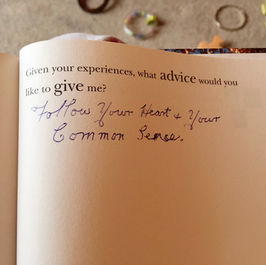 Given your experiences, what advice would you
like to give me?
Follow Your Heart & Your
Common Sense.